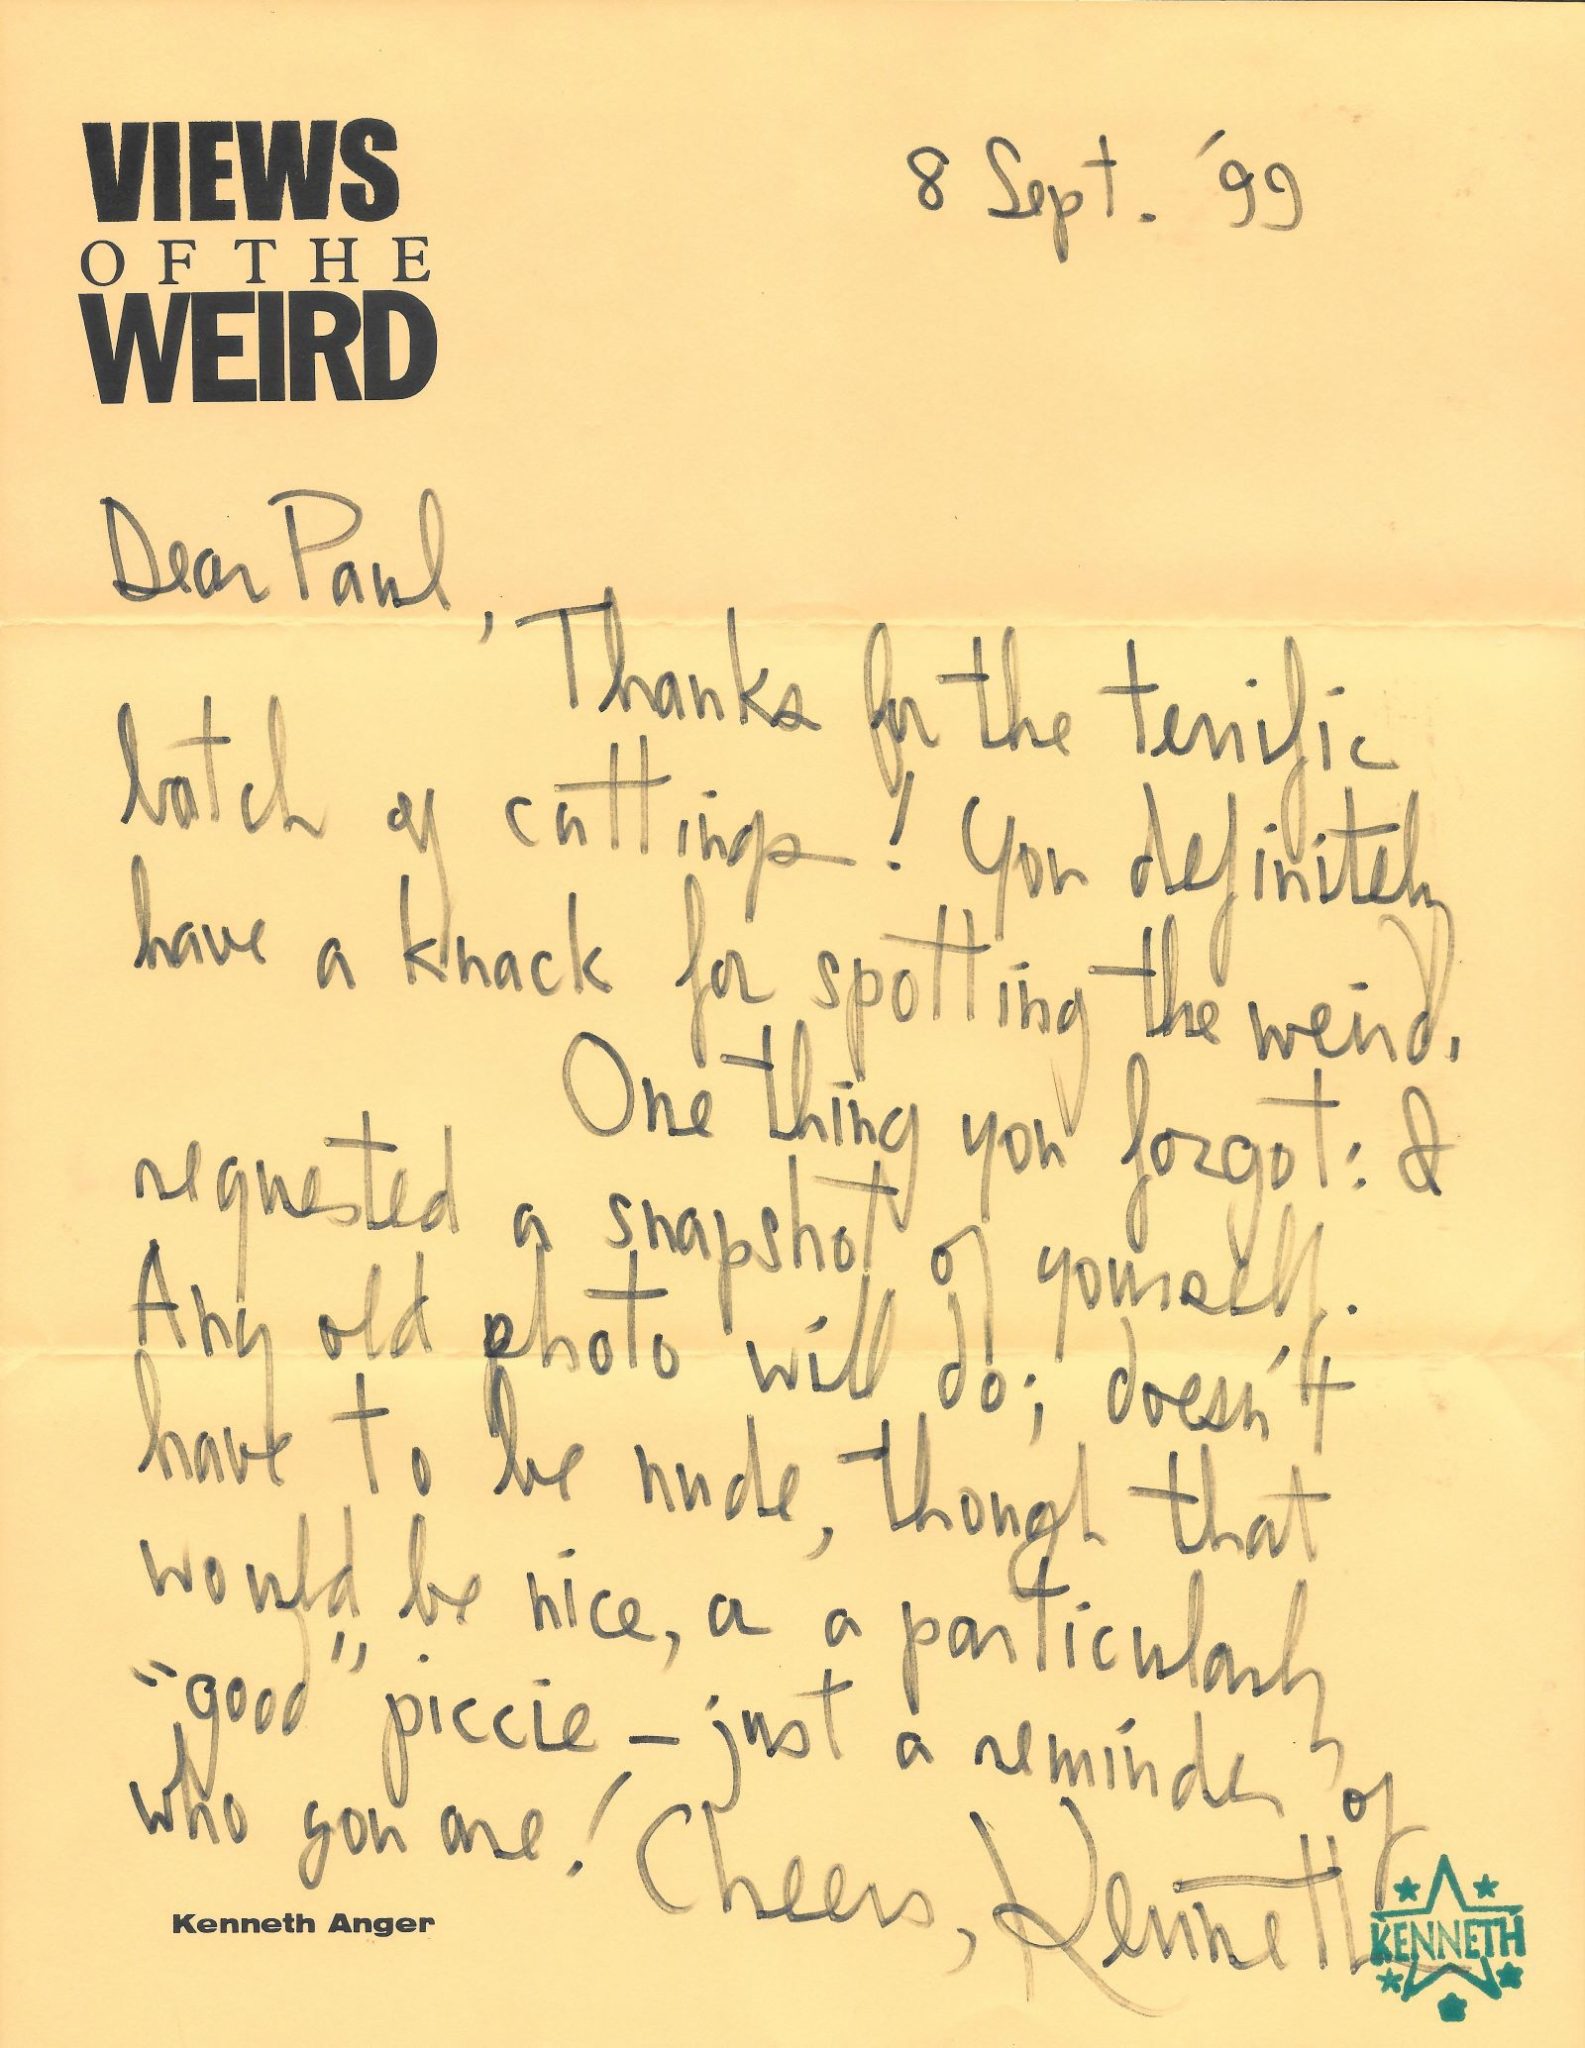 VIEWS
OF THE
WEIRD
8 Sept. '99
Dear Paul,
Thanks for the terrific
batch of cuttings! You definitely
have a knack for spotting the weird.
One thing you forgot: I
requested a snapshot of yourself.
Any old photo will do; doesn't
have to be nude, though that
would be nice, or a particularly
"good" piccie – just a reminder of
who you are! Cheers, Kenneth
KENNETH
Kenneth Anger